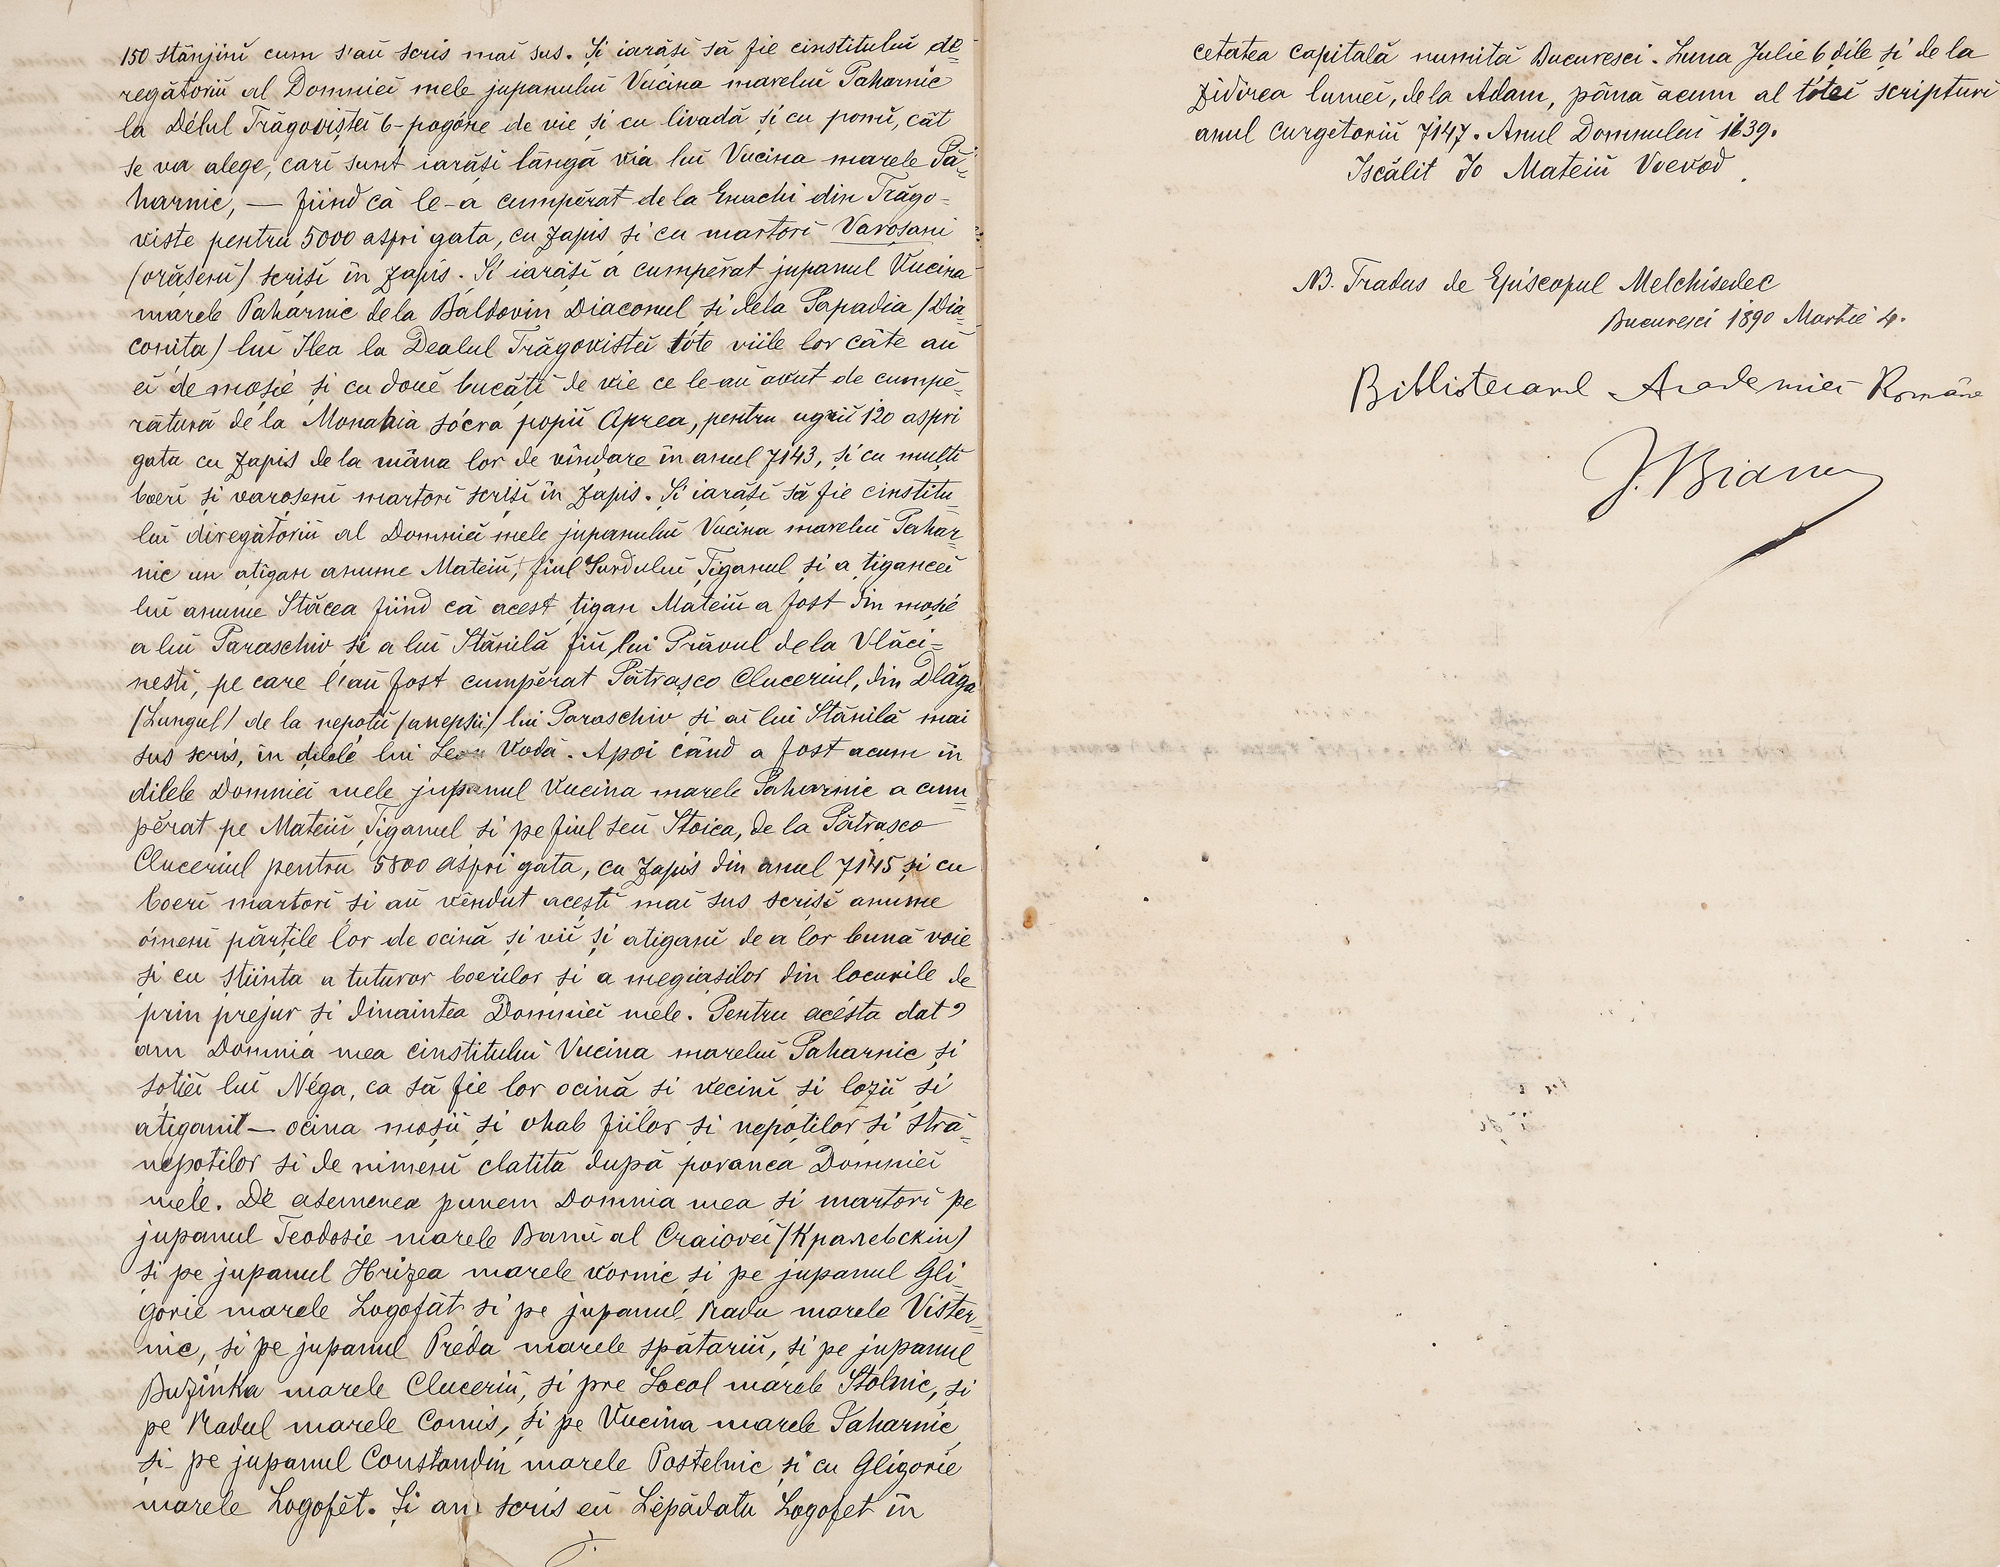 150 stânjinĭ cum s'aŭ scris maĭ sus. Şi iarăşĭ să fie cinstituluĭ de=
regătoriŭ al Domnieĭ mele jupanuluĭ Vucina mareluĭ Paharnic
la Délul Trăgovişteĭ 6-pogóne de vie şi cu livadă şi cu pomĭ, cât
se va alege, carĭ sunt iarăşĭ lângă via luĭ Vucina marele Pa=
harnic, — fiind că le-a cumpĕrat de la Enachi din Trăgo=
viste pentru 5000 aspri gata, cu zapis şi cu martorĭ Varoşanĭ
(orăşenĭ) scrişĭ în zapis. Şi iarăşĭ a cumpĕrat jupanul Vucina
marele Paharnic dela Baldovin Diaconul şi dela Papadia (Dia=
coniţa) luĭ Ilea la Dealul Trăgovisteĭ tóte viile lor câte aŭ
eĭ de moşie şi cu douĕ bucăţĭ de vie ce le-aŭ avut de cumpĕ=
rătură de la Monahia sócra popiĭ Oprea, pentru ugriĭ 120 aspri
gata cu zapis de la mâna lor de vîndare în anul 7143, şi cu mulţĭ
boerĭ şi varoşenĭ martorĭ scrişĭ în zapis. Şi iarăşĭ să fie cinstitu=
luĭ diregătoriŭ al Domnieĭ mele jupanuluĭ Vucina mareluĭ Pahar=
nic un aţigan anume Mateiŭ, fiul Surduluĭ Ţiganul şi a ţiganceĭ
luĭ anume Stăcea fiind că acest ţigan Mateiŭ a fost din moşie
a luĭ Paraschiv şi a luĭ Stănilă fiŭ luĭ Prăvul de la Vlăci=
neştĭ, pe care l'aŭ fost cumpĕrat Pătraşco Cluceriul, din Dlăga
(Lungul) de la nepoţiĭ (anepsii) luĭ Paraschiv şi aĭ luĭ Stănilă maĭ
sus scris, în ḑilele luĭ Leon Vodă. Apoĭ când a fost acum în
ḑilele Domnieĭ mele jupanul Vucina marele Paharnic a cum=
pĕrat pe Mateiŭ Ţiganul şi pe fiul sĕŭ Stoica, de la Pătraşco
Cluceriul pentru 5800 aspri gata, cu zapis din anul 7145 şi cu
boerĭ martorĭ şi aŭ vêndut aceştĭ maĭ sus scrişĭ anume
ómenĭ părţile lor de ocină şi viĭ şi aţiganĭ de a lor bună voie
şi cu ştiinţa a tuturor boerilor şi a megiaşilor din locurile de
prin prejur şi dinaintea Domnieĭ mele. Pentru acésta dat'
am Domnia mea cinstituluĭ Vucina mareluĭ Paharnic şi
soţieĭ luĭ Néga, ca să fie lor ocină şi vecinĭ şi loziĭ şi
aţiganĭ — ocina moşiĭ şi ohab fiilor şi nepoţilor şi stră=
nepoţilor şi de nimenĭ clatită după poranca Domnieĭ
mele. De asemenea punem Domnia mea şi martorĭ pe
jupanul Teodosie marele Banŭ al Craioveĭ (Кралевскiи)
şi pe jupanul Hrizea marele vornic şi pe jupanul Gli=
gorie marele Logofăt şi pe jupanul Radu marele Vister=
nic, şi pe jupanul Préda marele spătariŭ, şi pe jupanul
Buzinka marele Cluceriŭ, şi pre Socol marele Stolnic, şi
pe Radul marele Comis, şi pe Vucina marele Paharnic
şi pe jupanul Constandin marele Postelnic şi cu Gligorie
marele Logofĕt. Şi am scris eŭ Lĕpădatu Logofet în
cetatea capitală numită Bucurescĭ. Luna Julie 6 ḑile şi de la
zidirea lumeĭ, dela Adam, până acum al toteĭ scripturĭ
anul curgĕtoriŭ 7147. Anul Domnuluĭ 1639.
Iscălit Io Mateiŭ Voevod.
NB. Tradus de Episcopul Melchisedec
Bucurescĭ 1890 Martie 4.
Bibliotecarul Academieĭ Române
J. Bianu